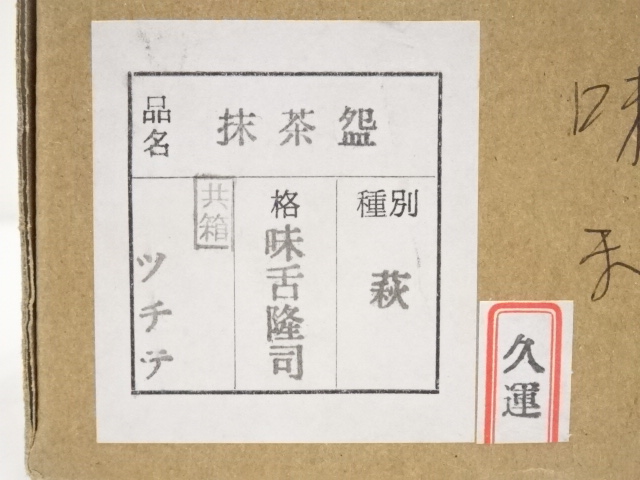 品名
抹茶盌
種別
萩
格
味舌隆司
共箱
ツチテ
久運
味